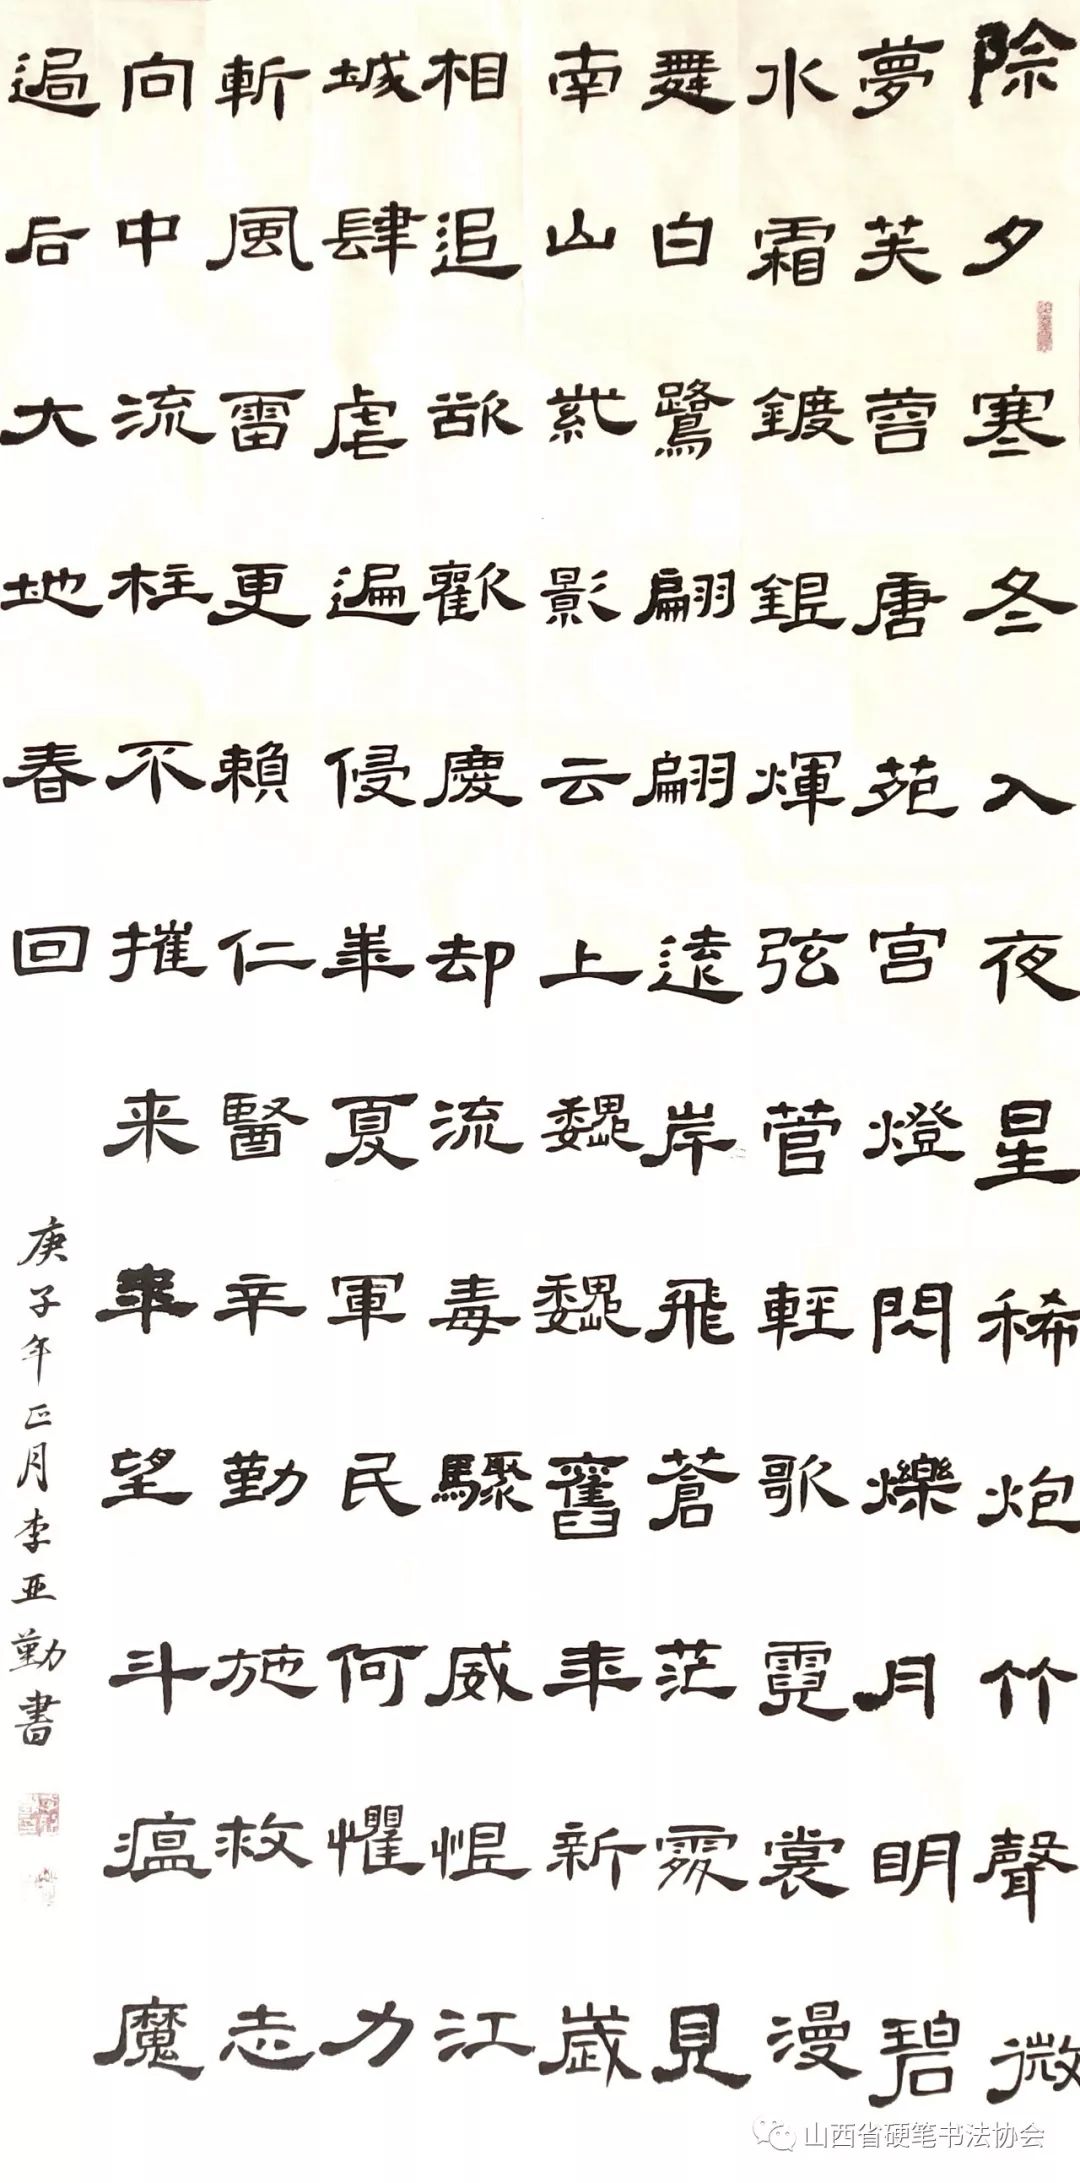 除夕寒冬入夜星稀炮竹聲微
夢芙蓉唐苑宫燈閃爍月明碧
水霜鍍銀輝弦管輕歌霓裳漫
舞白鷺翩翩遠岸飛蒼茫霧見
南山紫影云上巍巍舊年新歲
相追欲歡慶却流毒驟威恨江
城肆虐遍侵華夏軍民何懼力
斬風雷更賴仁醫辛勤施救志
向中流柱不摧来年望斗瘟魔
過后大地春回
庚子年正月李亚勤書
山西省硬笔书法协会